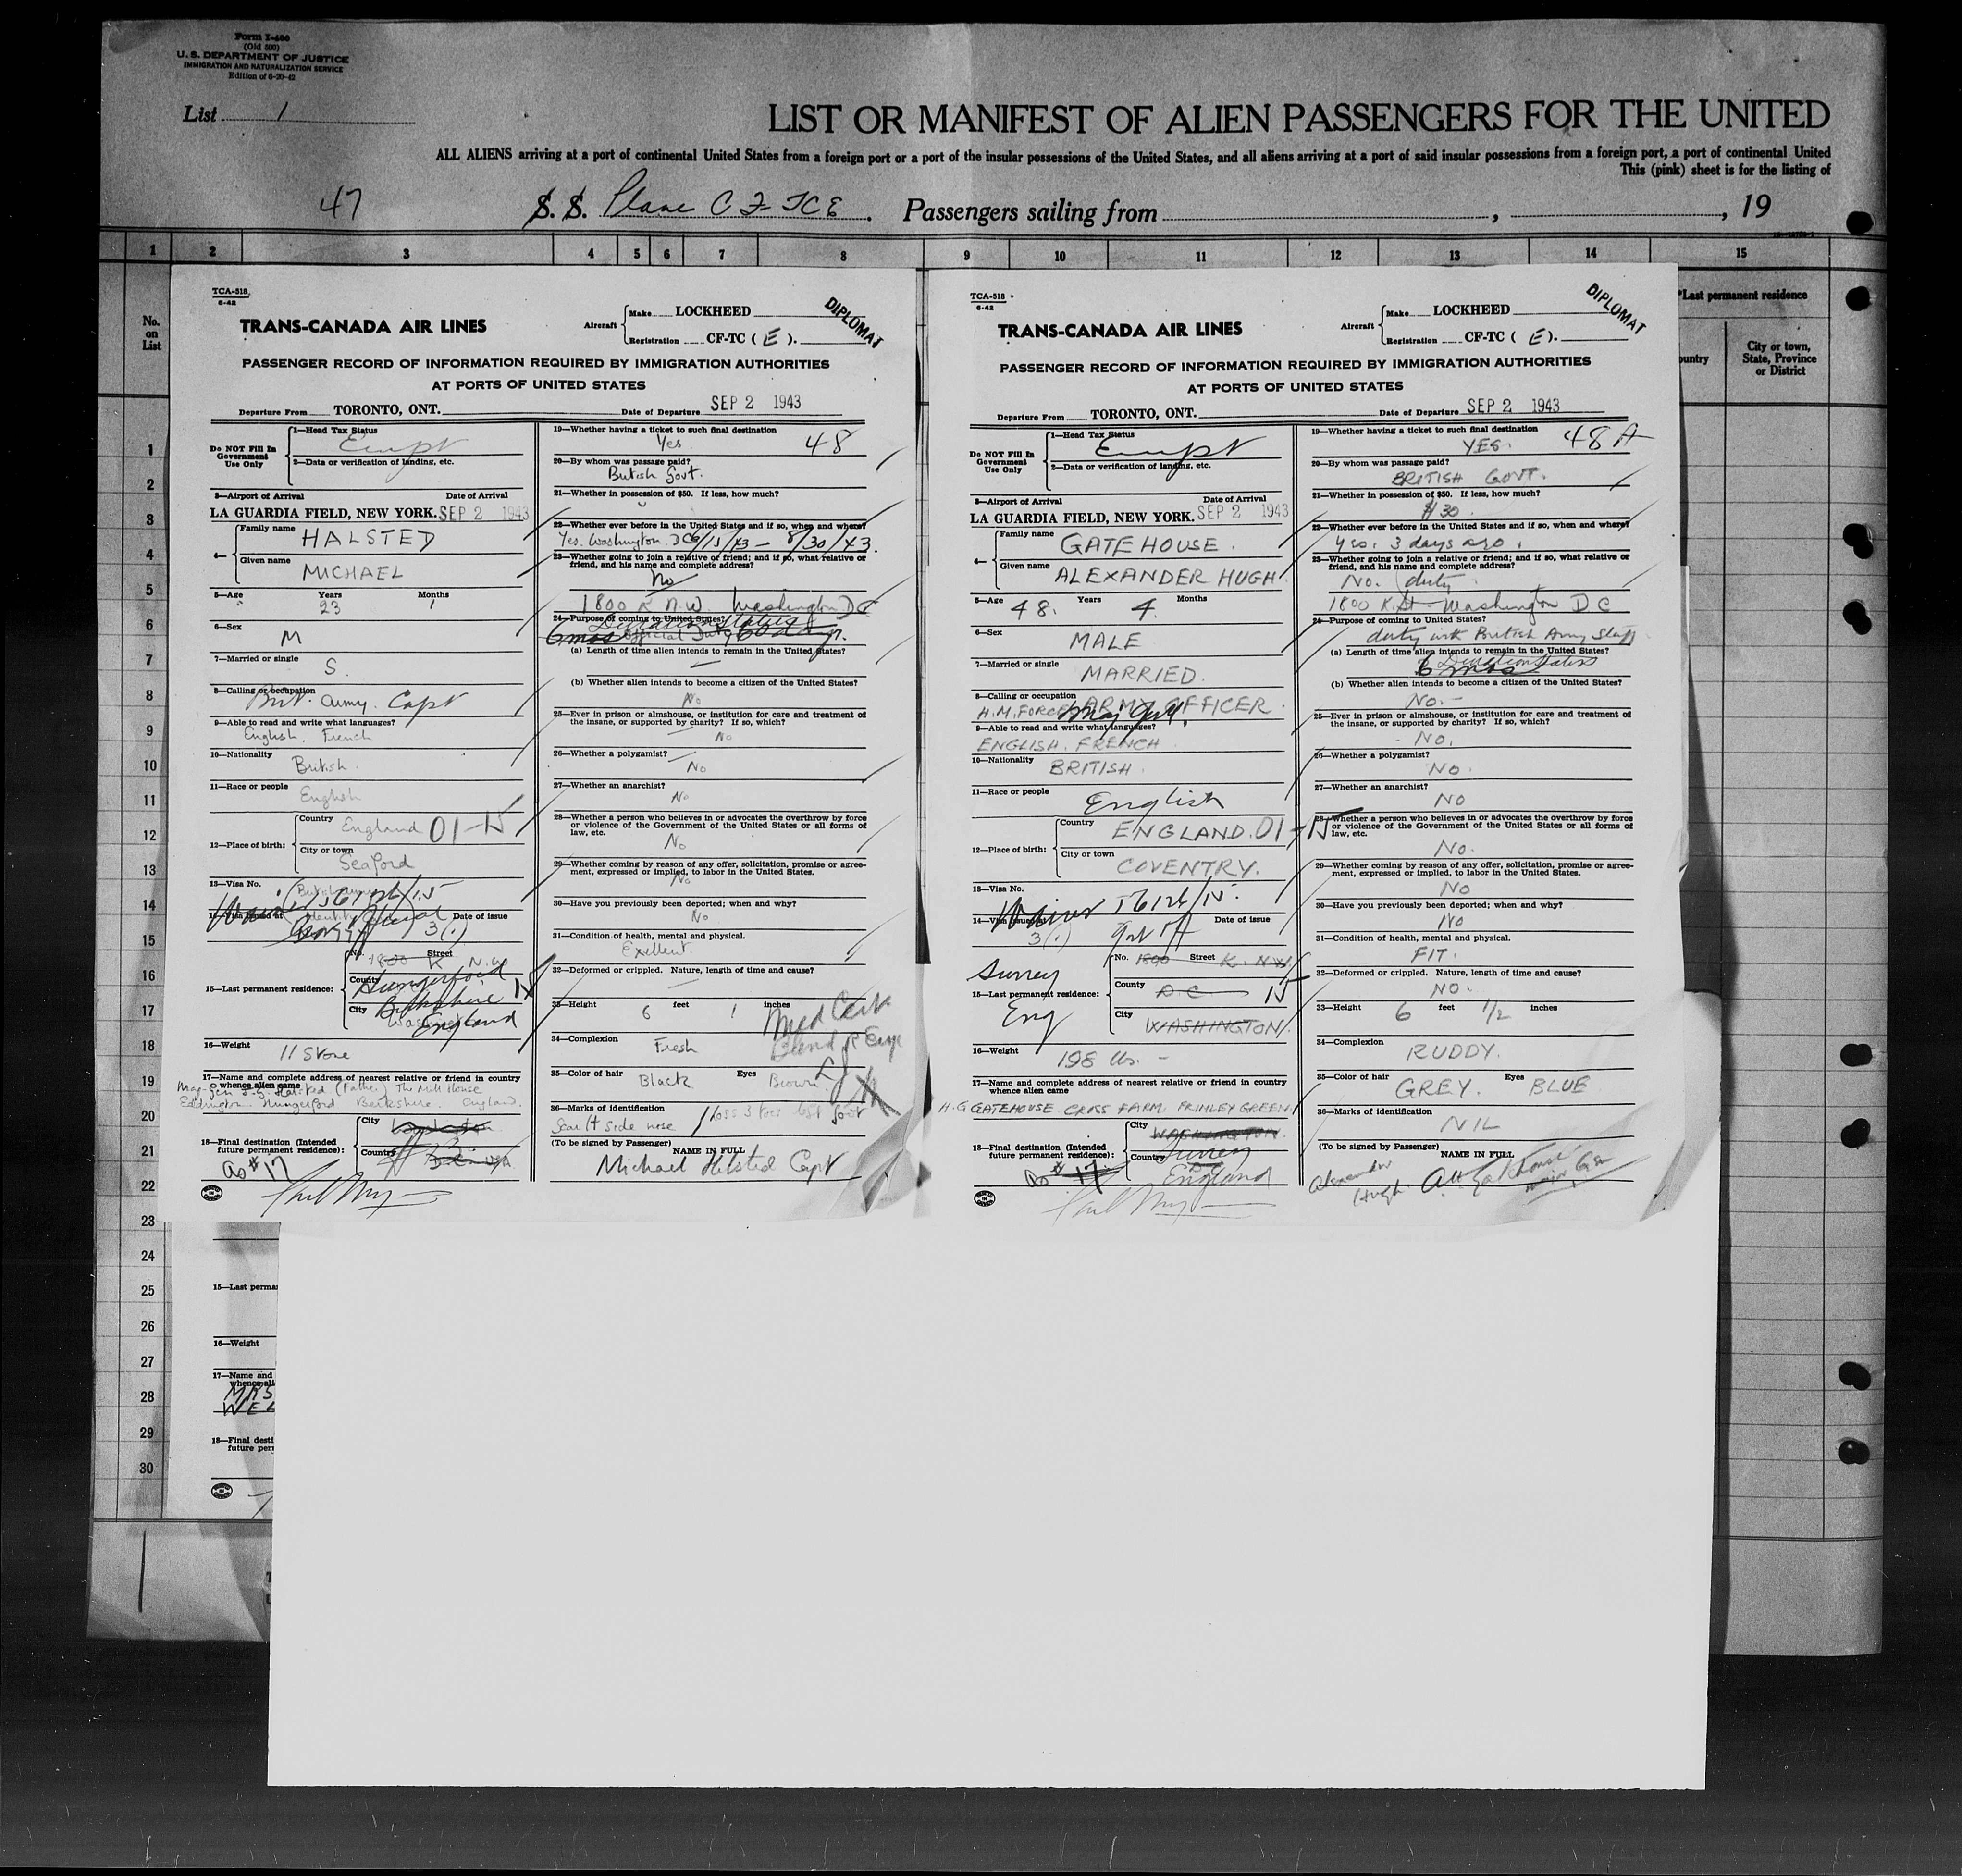 Form I-466
(Old 500)
U. S. DEPARTMENT OF JUSTICE
IMMIGRATION AND NATURALIZATION SERVICE
Edition of 6-20-42
List 1
LIST OR MANIFEST OF ALIEN PASSENGERS FOR THE UNITED
ALL ALIENS arriving at a port of continental United States from a foreign port or a port of the insular possessions of the United States, and all aliens arriving at a port of said insular possessions from a foreign port, a port of continental United
This (pink) sheet is for the listing of
47 S. S. Plane CF-TCE. Passengers sailing from , , 19
1 2 3 4 5 6 7 8 9 10 11 12 13 14 15
No. on List
*Last permanent residence
City or town, State, Province or District
1
2
3
4
5
6
7
8
9
10
11
12
13
14
15
16
17
18
19
20
21
22
23
24
25
26
27
28
29
30
TCA-518
6-42
TRANS-CANADA AIR LINES
Aircraft Make LOCKHEED
Registration CF-TC ( E ).
DIPLOMAT
PASSENGER RECORD OF INFORMATION REQUIRED BY IMMIGRATION AUTHORITIES
AT PORTS OF UNITED STATES
Departure From TORONTO, ONT. Date of Departure SEP 2 1943
Do NOT Fill In Government Use Only
1—Head Tax Status
Exmpt
2—Data or verification of landing, etc.
3—Airport of Arrival Date of Arrival
LA GUARDIA FIELD, NEW YORK. SEP 2 1943
4— Family name HALSTED
Given name MICHAEL
5—Age 23 Years 1 Months
6—Sex M
7—Married or single S.
8—Calling or occupation
Brit. Army. Capt
9—Able to read and write what languages?
English. French
10—Nationality British.
11—Race or people English
12—Place of birth: Country England 01-15
City or town Seaford
13—Visa No.
56126/15
14—Visa issued at Date of issue
3(1)
15—Last permanent residence: No. 1800 Street K N.W
County Hungerford
Berkshire 15
City England
16—Weight 11 Stone
17—Name and complete address of nearest relative or friend in country whence alien came
Maj-Gen J.G. Halsted (Father) The Mill House
Eddington. Hungerford Berkshire. England.
18—Final destination (Intended future permanent residence): City
Country
as #17
19—Whether having a ticket to such final destination
Yes 48
20—By whom was passage paid?
British Govt.
21—Whether in possession of $50. If less, how much?
22—Whether ever before in the United States and if so, when and where?
Yes. Washington. DC 6/15/43 - 8/30/43.
23—Whether going to join a relative or friend; and if so, what relative or friend, and his name and complete address?
No
1800 K N.W. Washington DC
24—Purpose of coming to United States?
Duration Status
6 mos Official Duty 60 days.
(a) Length of time alien intends to remain in the United States?
(b) Whether alien intends to become a citizen of the United States?
No
25—Ever in prison or almshouse, or institution for care and treatment of the insane, or supported by charity? If so, which?
No
26—Whether a polygamist?
No
27—Whether an anarchist?
No
28—Whether a person who believes in or advocates the overthrow by force or violence of the Government of the United States or all forms of law, etc.
No
29—Whether coming by reason of any offer, solicitation, promise or agreement, expressed or implied, to labor in the United States?
No
30—Have you previously been deported; when and why?
No
31—Condition of health, mental and physical.
Exellent.
32—Deformed or crippled. Nature, length of time and cause?
33—Height 6 feet 1 inches
Med Cert
34—Complexion Fresh
35—Color of hair Black Eyes Brown.
36—Marks of identification
Scar lt side nose / loss 3 toes left foot
(To be signed by Passenger) NAME IN FULL
Michael Halsted Capt
TCA-518
6-42
TRANS-CANADA AIR LINES
Aircraft Make LOCKHEED
Registration CF-TC ( E ).
DIPLOMAT
PASSENGER RECORD OF INFORMATION REQUIRED BY IMMIGRATION AUTHORITIES
AT PORTS OF UNITED STATES
Departure From TORONTO, ONT. Date of Departure SEP 2 1943
Do NOT Fill In Government Use Only
1—Head Tax Status
Exmpt
2—Data or verification of landing, etc.
3—Airport of Arrival Date of Arrival
LA GUARDIA FIELD, NEW YORK. SEP 2 1943
4— Family name GATEHOUSE.
Given name ALEXANDER HUGH.
5—Age 48. Years 4. Months
6—Sex MALE
7—Married or single MARRIED.
8—Calling or occupation ARMY OFFICER
H.M. FORCES
9—Able to read and write what languages?
ENGLISH. FRENCH
10—Nationality BRITISH.
11—Race or people English
12—Place of birth: Country ENGLAND. 01-15
City or town COVENTRY.
13—Visa No.
Waiver 56126/15.
14—Visa issued at Date of issue
3(1)
15—Last permanent residence: No. 1800 Street K. N.W
County D.C 15
City WASHINGTON
Surrey
Eng
16—Weight 198 lbs.
17—Name and complete address of nearest relative or friend in country whence alien came
H.G GATEHOUSE CROSS FARM. FRIMLEY GREEN.
18—Final destination (Intended future permanent residence): City WASHINGTON.
Country Surrey
England
as #17
19—Whether having a ticket to such final destination
YES. 48 A
20—By whom was passage paid?
BRITISH GOVT.
21—Whether in possession of $50. If less, how much?
$30.
22—Whether ever before in the United States and if so, when and where?
Yes. 3 days ago.
23—Whether going to join a relative or friend; and if so, what relative or friend, and his name and complete address?
No. (duty
1800 K.St Washington D C
24—Purpose of coming to United States?
duty with British Army Staff
(a) Length of time alien intends to remain in the United States?
Duration Status
6 mos
(b) Whether alien intends to become a citizen of the United States?
No.
25—Ever in prison or almshouse, or institution for care and treatment of the insane, or supported by charity? If so, which?
No.
26—Whether a polygamist?
No.
27—Whether an anarchist?
No
28—Whether a person who believes in or advocates the overthrow by force or violence of the Government of the United States or all forms of law, etc.
No.
29—Whether coming by reason of any offer, solicitation, promise or agreement, expressed or implied, to labor in the United States?
No
30—Have you previously been deported; when and why?
No
31—Condition of health, mental and physical.
FIT.
32—Deformed or crippled. Nature, length of time and cause?
NO.
33—Height 6 feet 1/2 inches
34—Complexion RUDDY.
35—Color of hair GREY. Eyes BLUE
36—Marks of identification
NIL
(To be signed by Passenger) NAME IN FULL
Alexander Hugh. AH Gatehouse Major Gen
15—Last perma
16—Weight
17—Name and
whence ali
MRS
WEL
18—Final desti
future per